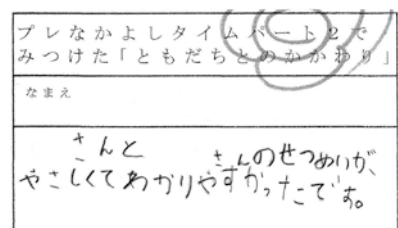 プレなかよしタイムパート2で
みつけた「ともだちとのかかわり」
なまえ
さんと
さんのせつめいが、
やさしくてわかりやすかったてです。